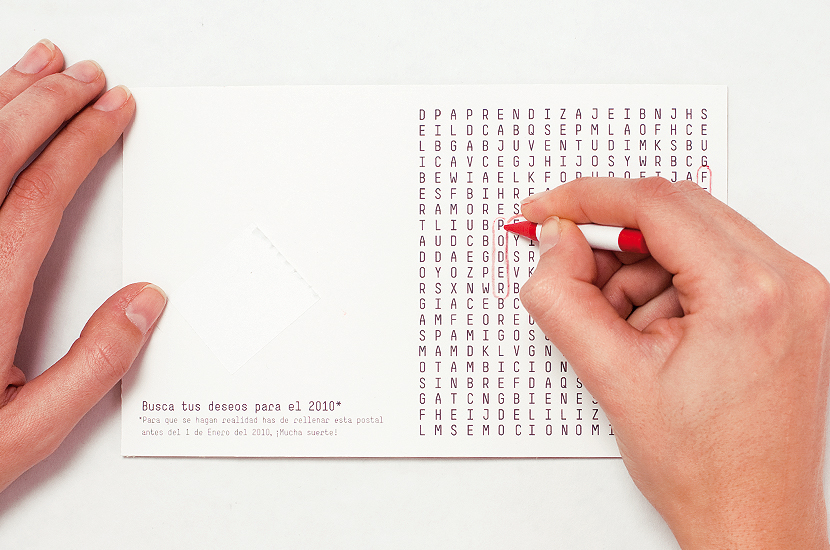 D P A P R E N D I Z A J E I B N J H S
E I L D C A B Q S E P M L A O F H C E
L B G A B J U V E N T U D I M K S B U
I C A V C E G J H I J O S Y W R B C G
B E W I A E L K F O J A F
E S F B I H R E
R A M O R E S
T L I U B P
A U D C B O Y
D D A E G D S R
O Y O Z P E V K
R S X N W R B
G I A C E B C
A M F E O R E O
S P A M I G O S
M A M D K L V G N
O T A M B I C I O N
S I N B R E F D A Q S
G A T C N G B I E N E S
F H E I J D E L I L I Z
L M S E M O C I O N O M I
Busca tus deseos para el 2010*
*Para que se hagan realidad has de rellenar esta postal
antes del 1 de Enero del 2010. ¡Mucha suerte!